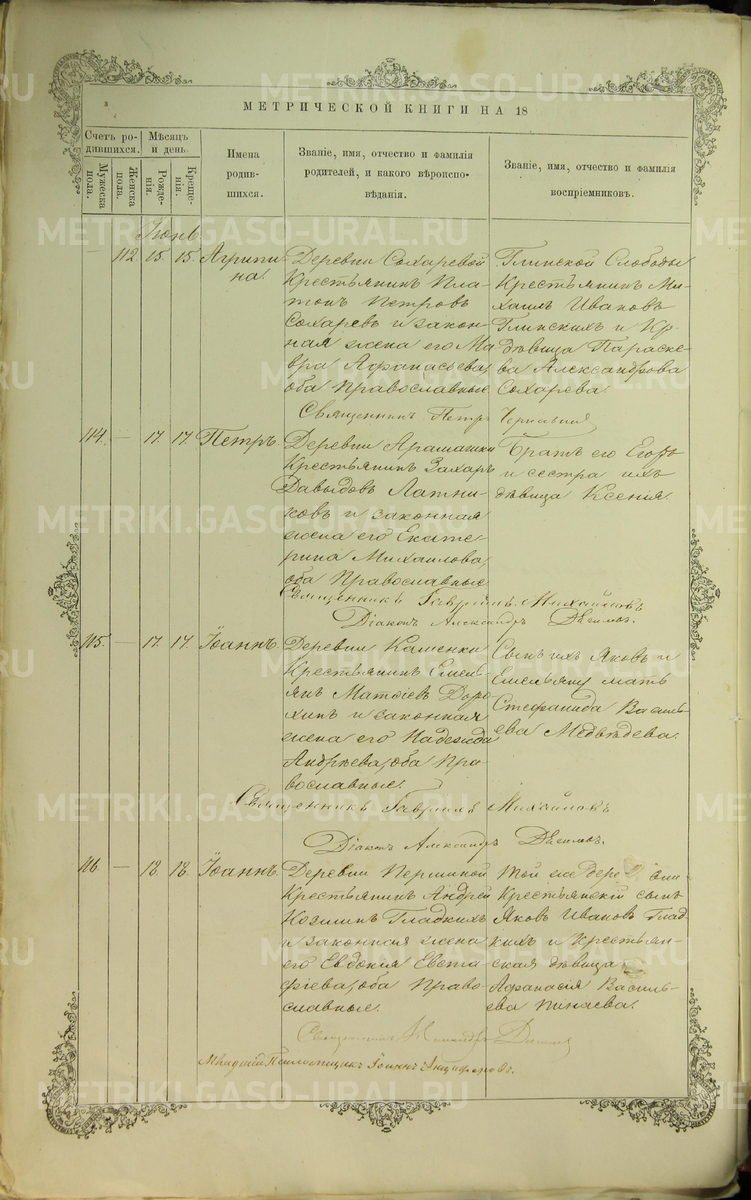 МЕТРИЧЕСКОЙ КНИГИ НА 18
Счетъ ро-
дившихся.
Мѣсяцъ
и день.
Мужеска
пола.
Женска
пола.
Рожде-
нія.
Креще-
нія.
Имена
родив-
шихся.
Званіе, имя, отчество и фамилія
родителей, и какого вѣроиспо-
вѣданія.
Званіе, имя, отчество и фамилія
воспріемниковъ.
Іюнь.
— 112 15. 15. Агрипи-
на.
Деревни Сохаревой
Крестьянинъ Пла-
тонъ Петровъ
Сохаревъ и закон-
ная жена его Ма-
вра Афанасьева,
оба Православные
Глинской Слободы
Крестьянинъ Ми-
хаилъ Ивановъ
Глинскихъ и Кр.
дѣвица Параске-
ва Александрова
Сохарева.
Священникъ Петръ
114. — 17. 17. Петръ.
Деревни Арамашки
Крестьянинъ Захаръ
Давыдовъ Латни-
ковъ и законная
жена его Екате-
рина Михаилова,
оба Православные
Братъ его Егоръ
и сестра ихъ
дѣвица Ксенія.
Священникъ Гавріилъ Михайловъ
Діаконъ Александръ
115. — 17. 17. Іоаннъ.
Деревни Каменки
Крестьянинъ Емель-
янъ Матѳіевъ Доро-
хинъ и законная
жена его Надежда
Андрѣева, оба Пра-
вославные.
Сынъ ихъ Яковъ и
Емельяну мать
Стефанида Василь-
ева Медвѣдева.
Священникъ Гавріилъ Михайловъ
Діаконъ Александръ
116. — 18. 18. Іоаннъ.
Деревни Першиной
Крестьянинъ Андрей
Козминъ Гладкихъ
и законная жена
его Евдокія Евста-
фіева, оба Право-
славные.
Той же дере
Крестьянскій сынъ
Яковъ Ивановъ Глад-
кихъ и Крестьян-
ская дѣвица
Афанасія Василь-
ева Пинаева.
Священникъ
Младшій Псаломщикъ Іоаннъ Анциферовъ.
METRIKI.GASO-URAL.RU